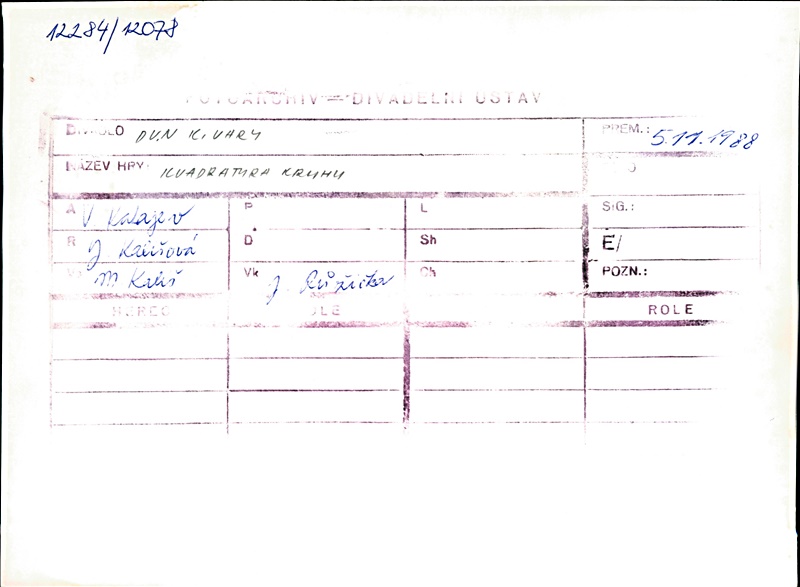 12284/12078
FOTOARCHIV — DIVADELNÍ ÚSTAV
DIVADLO DVN K. VARY PREM.: 5.11.1988
NÁZEV HRY: KVADRATURA KRUHU
A V Katajev P L SIG.:
R J Kališová D Sh E/
M Kališ Vk J. Růžička Ch POZN.:
HEREC ROLE ROLE